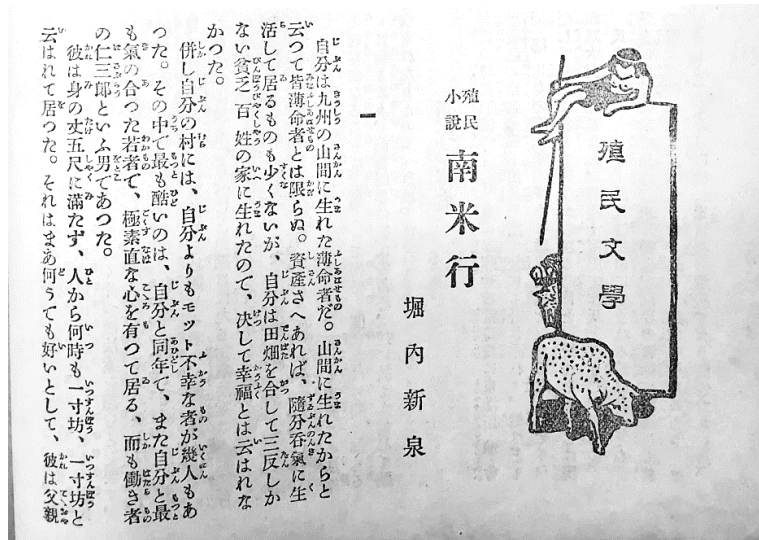 殖民文學
殖民
小說
南米行
堀內新泉
一
自分は九州の山間に生れた薄命者だ。山間に生れたからと
云つて皆薄命者とは限らぬ。資產さへあれば、隨分呑氣に生
活して居るものも少くないが、自分は田畑を合して三反しか
ない貧乏百姓の家に生れたので、決して幸福とは云はれな
かつた。
併し自分の村には、自分よりもモット不幸な者が幾人もあ
つた。その中で最も酷いのは、自分と同年で、また自分と最
も氣の合った若者で、極素直な心を有つて居る、而も働き者
の仁三郎といふ男であつた。
彼は身の丈五尺に滿たず、人から何時も一寸坊、一寸坊と
云はれて居つた。それはまあ何うても好いとして、彼は父親